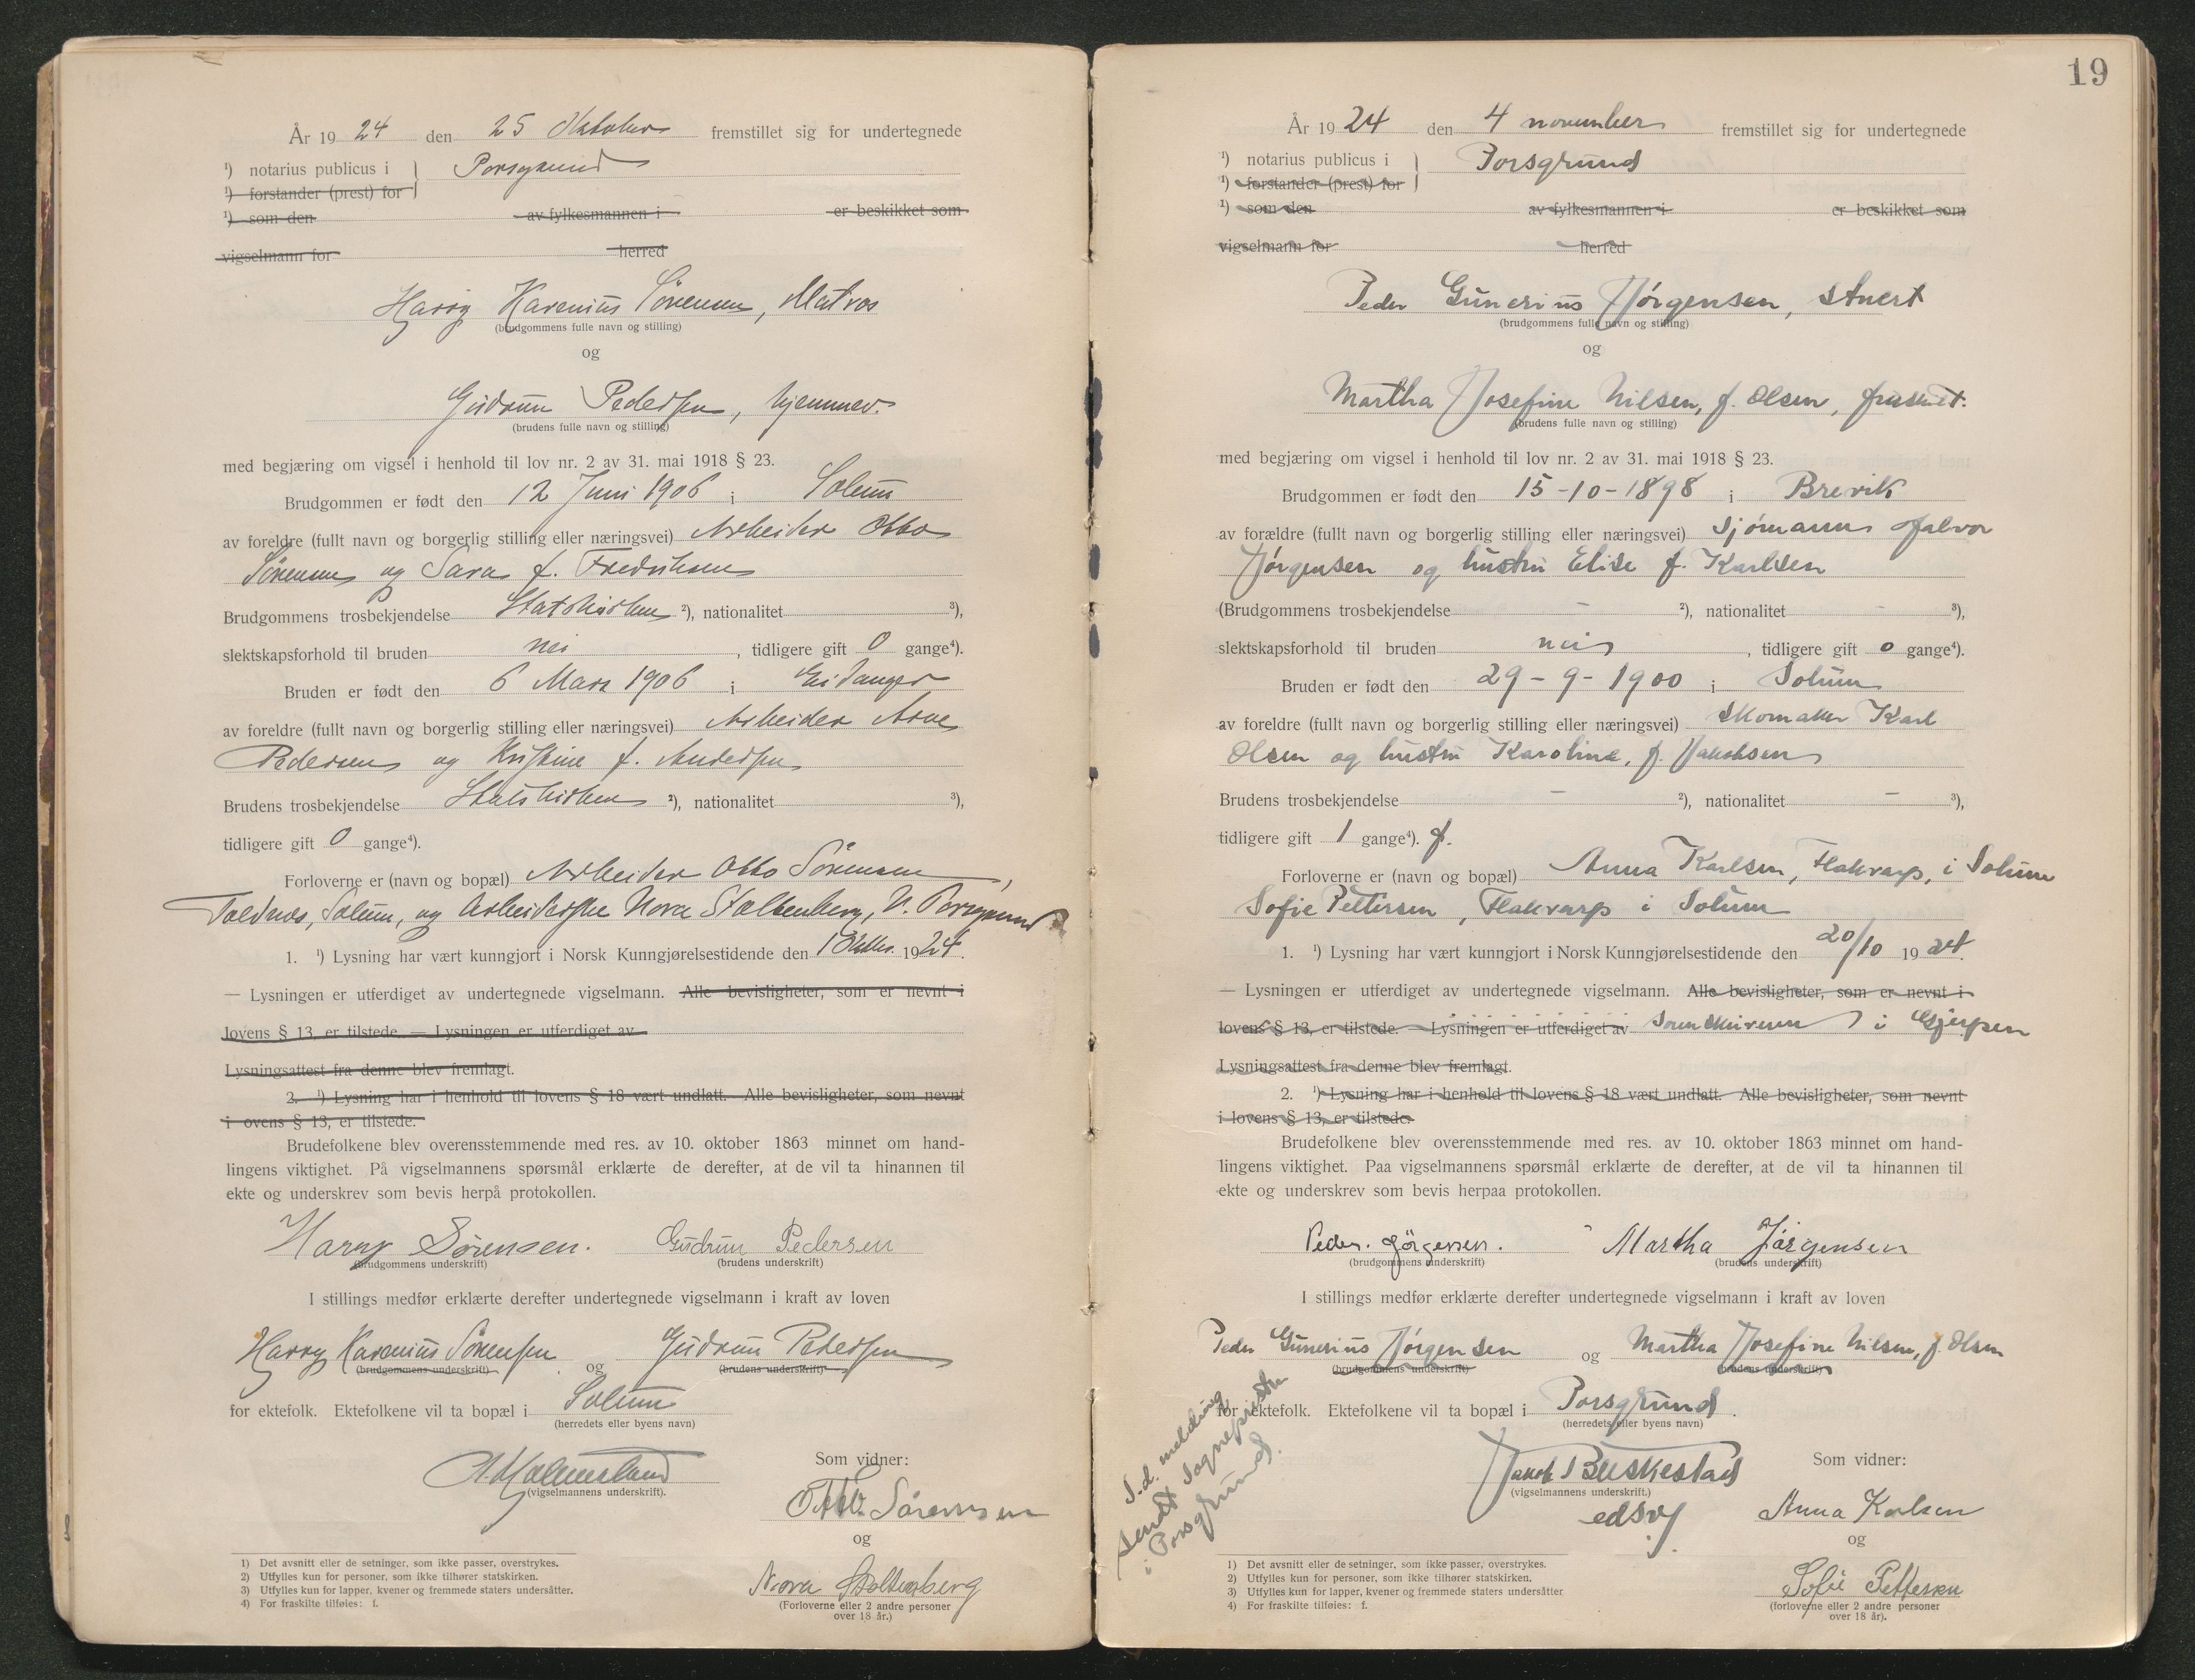 År 19 24 den 25 Oktober fremstillet sig for undertegnede
¹) notarius publicus i Porsgrund
¹) forstander (prest) for
¹) som den av fylkesmannen i er beskikket som
vigselmann for herred
Harry Karenius Sørensen, Matros
(brudgommens fulle navn og stilling)
og
Gudrun Pedersen, hjemmev.
(brudens fulle navn og stilling)
med begjæring om vigsel i henhold til lov nr. 2 av 31. mai 1918 § 23.
Brudgommen er født den 12 Juni 1906 i Solum
av foreldre (fullt navn og borgerlig stilling eller næringsvei) Arbeider Otto
Sørensen og Sara f. Fredriksen
Brudgommens trosbekjendelse Statskirken ²), nationalitet ³),
slektskapsforhold til bruden nei, tidligere gift 0 gange⁴).
Bruden er født den 6 Mars 1906 i Eidanger
av foreldre (fullt navn og borgerlig stilling eller næringsvei) Arbeider Arne
Pedersen og Kristine f. Andersen
Brudens trosbekjendelse Statskirken ²), nationalitet ³),
tidligere gift 0 gange⁴).
Forloverne er (navn og bopæl) Arbeider Otto Sørensen,
Solum, og Arbeiderske Nora Stoltenberg, V. Porsgrund
1. ¹) Lysning har vært kunngjort i Norsk Kunngjørelsestidende den 1 Oktbr. 1924.
— Lysningen er utferdiget av undertegnede vigselmann. Alle bevisligheter, som er nevnt i
lovens § 13, er tilstede. — Lysningen er utferdiget av
Lysningsattest fra denne blev fremlagt.
2. ¹) Lysning har i henhold til lovens § 18 vært undlatt. Alle bevisligheter, som nevnt
i ovens § 13, er tilstede.
Brudefolkene blev overensstemmende med res. av 10. oktober 1863 minnet om hand-
lingens viktighet. På vigselmannens spørsmål erklærte de derefter, at de vil ta hinannen til
ekte og underskrev som bevis herpå protokollen.
Harry Sørensen. Gudrun Pedersen
(brudgommens underskrift) (brudens underskrift)
I stillings medfør erklærte derefter undertegnede vigselmann i kraft av loven
Harry Karenius Sørensen og Gudrun Pedersen
(brudgommens underskrift) (brudens underskrift)
for ektefolk. Ektefolkene vil ta bopæl i Solum
(herredets eller byens navn)
Som vidner:
(vigselmannens underskrift).
Otto Sørensen
og
Nora Stoltenberg
(Forloverne eller 2 andre personer
over 18 år.)
1) Det avsnitt eller de setninger, som ikke passer, overstrykes.
2) Utfylles kun for personer, som ikke tilhører statskirken.
3) Utfylles kun for lapper, kvener og fremmede staters undersåtter.
4) For fraskilte tilføies: f.
19
År 19 24 den 4 november fremstillet sig for undertegnede
¹) notarius publicus i Porsgrund
¹) forstander (prest) for
¹) som den av fylkesmannen i er beskikket som
vigselmann for herred
Peder Gunerius Jørgensen, stuert
(brudgommens fulle navn og stilling)
og
Martha Josefine Nilsen, f. Olsen, frask.
(brudens fulle navn og stilling)
med begjæring om vigsel i henhold til lov nr. 2 av 31. mai 1918 § 23.
Brudgommen er født den 15-10-1898 i Brevik
av forældre (fullt navn og borgerlig stilling eller næringsvei) sjømann Halvor
Jørgensen og hustru Elise f. Karlsen
(Brudgommens trosbekjendelse - ²), nationalitet - ³),
slektskapsforhold til bruden nei, tidligere gift 0 gange⁴).
Bruden er født den 29-9-1900 i Solum
av foreldre (fullt navn og borgerlig stilling eller næringsvei) skomaker Karl
Olsen og hustru Karoline, f. Jakobsen
Brudens trosbekjendelse - ²), nationalitet - ³),
tidligere gift 1 gange⁴). f.
Forloverne er (navn og bopæl) Anna Karlsen, Flakvarp, i Solum
Sofie Pettersen, Flakvarp i Solum
1. ¹) Lysning har vært kunngjort i Norsk Kunngjørelsestidende den 20/10 1924.
— Lysningen er utferdiget av undertegnede vigselmann. Alle bevisligheter, som er nevnt i
lovens § 13, er tilstede. — Lysningen er utferdiget av Sorenskriveren i Gjerpen
Lysningsattest fra denne blev fremlagt.
2. ¹) Lysning har i henhold til lovens § 18 vært undlatt. Alle bevisligheter, som nevnt
i lovens § 13, er tilstede.
Brudefolkene blev overensstemmende med res. av 10. oktober 1863 minnet om hand-
lingens viktighet. Paa vigselmannens spørsmål erklærte de derefter, at de vil ta hinannen til
ekte og underskrev som bevis herpaa protokollen.
Peder. Jörgensen. Martha Jørgensen
(brudgommens underskrift) (brudens underskrift)
I stillings medfør erklærte derefter undertegnede vigselmann i kraft av loven
Peder Gunerius Jørgensen og Martha Josefine Nilsen, f. Olsen
(brudgommens underskrift) (brudens underskrift)
for ektefolk. Ektefolkene vil ta bopæl i Porsgrund.
(herredets eller byens navn)
S.d. melding
sendt sognepresten
i Porsgrund.
Som vidner:
Jakob Buskestad
(vigselmannens underskrift.)
edsv.
Anna Karlsen
og
Sofie Pettersen
(forloverne eller 2 andre personer
over 18 år).
1) Det avsnitt eller de setninger, som ikke passer, overstrykes.
2) Utfylles kun for personer, som ikke tilhører statskirken.
3) Utfylles kun for lapper, kvener og fremmede staters undersåtter
4) For fraskilte tilføies: f.